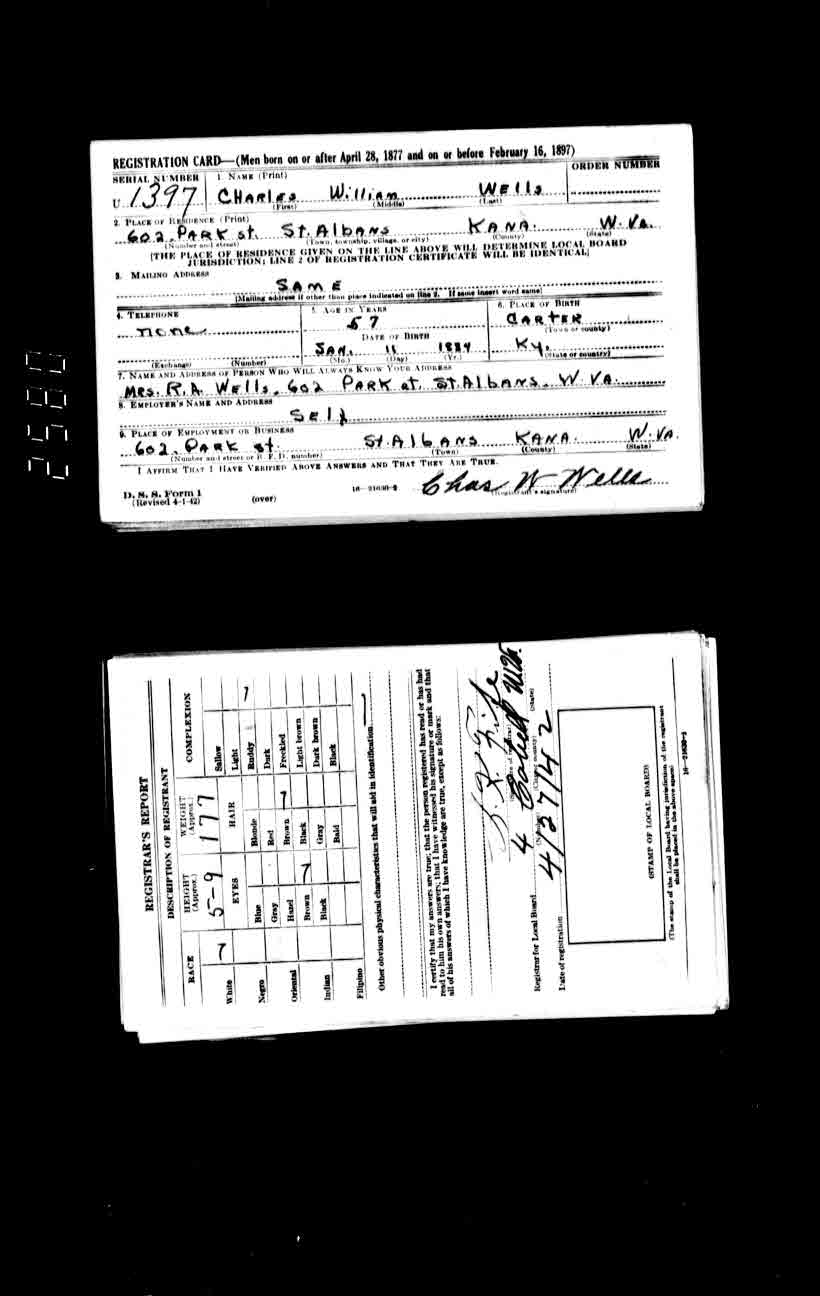 REGISTRATION CARD—(Men born on or after April 28, 1877 and on or before February 16, 1897)
SERIAL NUMBER 1. NAME (Print) ORDER NUMBER
U 1397 CHARlEs William WElls
(First) (Middle) (Last)
2. PLACE OF RESIDENCE (Print)
602. PARK st. ST. AlbANs KANA. W. Va.
(Number and street) (Town, township, village, or city) (County) (State)
[THE PLACE OF RESIDENCE GIVEN ON THE LINE ABOVE WILL DETERMINE LOCAL BOARD
JURISDICTION; LINE 2 OF REGISTRATION CERTIFICATE WILL BE IDENTICAL]
3. MAILING ADDRESS
SAME
[Mailing address if other than place indicated on line 2. If same insert word same]
4. TELEPHONE 5. AGE IN YEARS 6. PLACE OF BIRTH
none 57 CARTER
(Town or county)
DATE OF BIRTH
JAN. 11 1884 Ky.
(Exchange) (Number) (Mo.) (Day) (Yr.) (State or country)
7. NAME AND ADDRESS OF PERSON WHO WILL ALWAYS KNOW YOUR ADDRESS
MRs. R.A. WElls. 602 PARK st. ST. AlbANs. W. VA.
8. EMPLOYER'S NAME AND ADDRESS
SElf
9. PLACE OF EMPLOYMENT OR BUSINESS
602. PARK st. ST. AlbANs KANA. W. VA.
(Number and street or R. F. D. number) (Town) (County) (State)
I AFFIRM THAT I HAVE VERIFIED ABOVE ANSWERS AND THAT THEY ARE TRUE.
D. S. S. Form 1
(Revised 4-1-42) (over) 16—21630-2 Chas W Wells
(Registrant's signature)
REGISTRAR'S REPORT
DESCRIPTION OF REGISTRANT
RACE HEIGHT (Approx.) WEIGHT (Approx.) COMPLEXION
5-9 177
White EYES HAIR Sallow
Light
Negro Blue Blonde Ruddy
Gray Red Dark
Oriental Hazel Brown Freckled
Brown Black Light brown
Indian Black Gray Dark brown
Bald Black
Filipino
Other obvious physical characteristics that will aid in identification
I certify that my answers are true; that the person registered has read or has had
read to him his own answers; that I have witnessed his signature or mark and that
all of his answers of which I have knowledge are true, except as follows:
Registrar for Local Board 4
(Number) (City or county) (State)
Date of registration 4/27/42
(STAMP OF LOCAL BOARD)
(The stamp of the Local Board having jurisdiction of the registrant
shall be placed in the above space)
16—21630-1